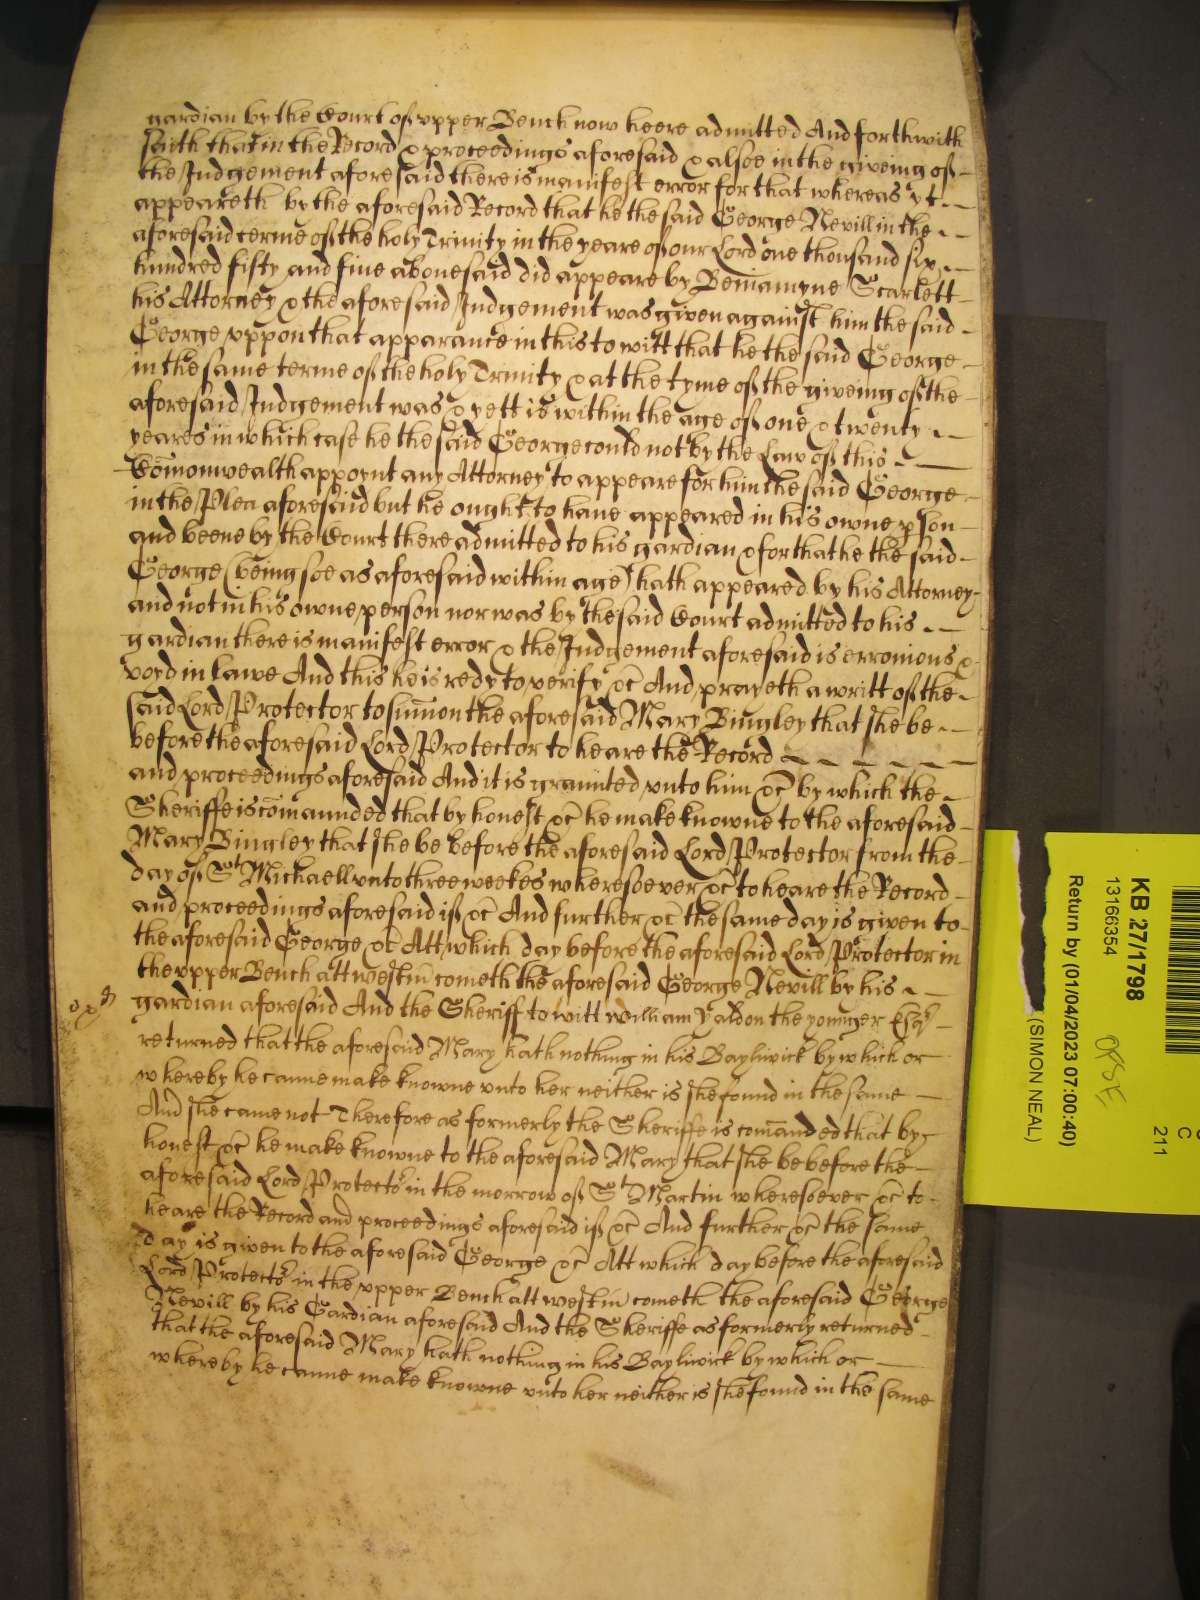 gardian by the Court of vpper Bench now heere admitted And forthwith
saith that in the Record & proceedings aforesaid & alsoe in the giveing of
the Judgement aforesaid there is manifest error for that whereas yt
appeareth by the aforesaid Record that he the said George Nevill in the
aforesaid terme of the holy Trinity in the yeare of our Lord one thousand six
hundred fifty and fiue abouesaid did appeare by Beniamyne Scarlett
his Attorney & the aforesaid Judgement was given against him the said
George vppon that apparance in this to witt that he the said George
in the same terme of the holy Trinity & at the tyme of the giveing of the
aforesaid Judgement was & yett is within the age of one & twenty
yeares in which case he the said George could not by the Law of this
Com̄onwealth appoynt any Attorney to appeare for him the said George
in the Plea aforesaid but he ought to haue appeared in his owne pson
and beene by the Court there admitted to his gardian & for that he the said
George (being soe as aforesaid within age) hath appeared by his Attorney
and not in his owne person nor was by the said Court admitted to his
gardian there is manifest error & the Judgement aforesaid is erronious &
voyd in lawe And this he is redy to verify &c And prayeth a writt of the
said Lord Protector to sum̄on the aforesaid Mary Bingley that she be
before the aforesaid Lord Protector to heare the Record
and proceedings aforesaid And it is graunted vnto him &c by which the
Sheriffe is com̄aunded that by honest &c he make knowne to the aforesaid
Mary Bingley that she be before the aforesaid Lord Protector from the
day of St Michaell vnto three weekes wheresoever &c to heare the Record
and proceedings aforesaid if &c And further &c the same day is given to
the aforesaid George &c Att which day before the aforesaid Lord Protector in
the vpper Bench att westm̄ cometh the aforesaid George Nevill by his
gardian aforesaid And the Sheriff to witt william Yaldon the younger Esqr
returned that the aforesaid Mary hath nothing in his Bayliwick by which or
whereby he canne make knowne vnto her neither is she found in the same
And she came not Therefore as formerly the Sheriffe is com̄anded that by
honest &c he make knowne to the aforesaid Mary that she be before the
aforesaid Lord Protector in the morrow of St Martin wheresoever &c to
heare the Record and proceedings aforesaid if &c And further &c the same
day is given to the aforesaid George &c Att which day before the aforesaid
Lord Protector in the vpper Bench att westm̄ cometh the aforesaid George
Nevill by his Gardian aforesaid And the Sheriffe as formerly returned
that the aforesaid Mary hath nothing in his Bayliwick by which or
whereby he canne make knowne vnto her neither is she found in the same
KB 27/1798
13166354
Return by (01/04/2023 07:00:40)
(SIMON NEAL)
C
211